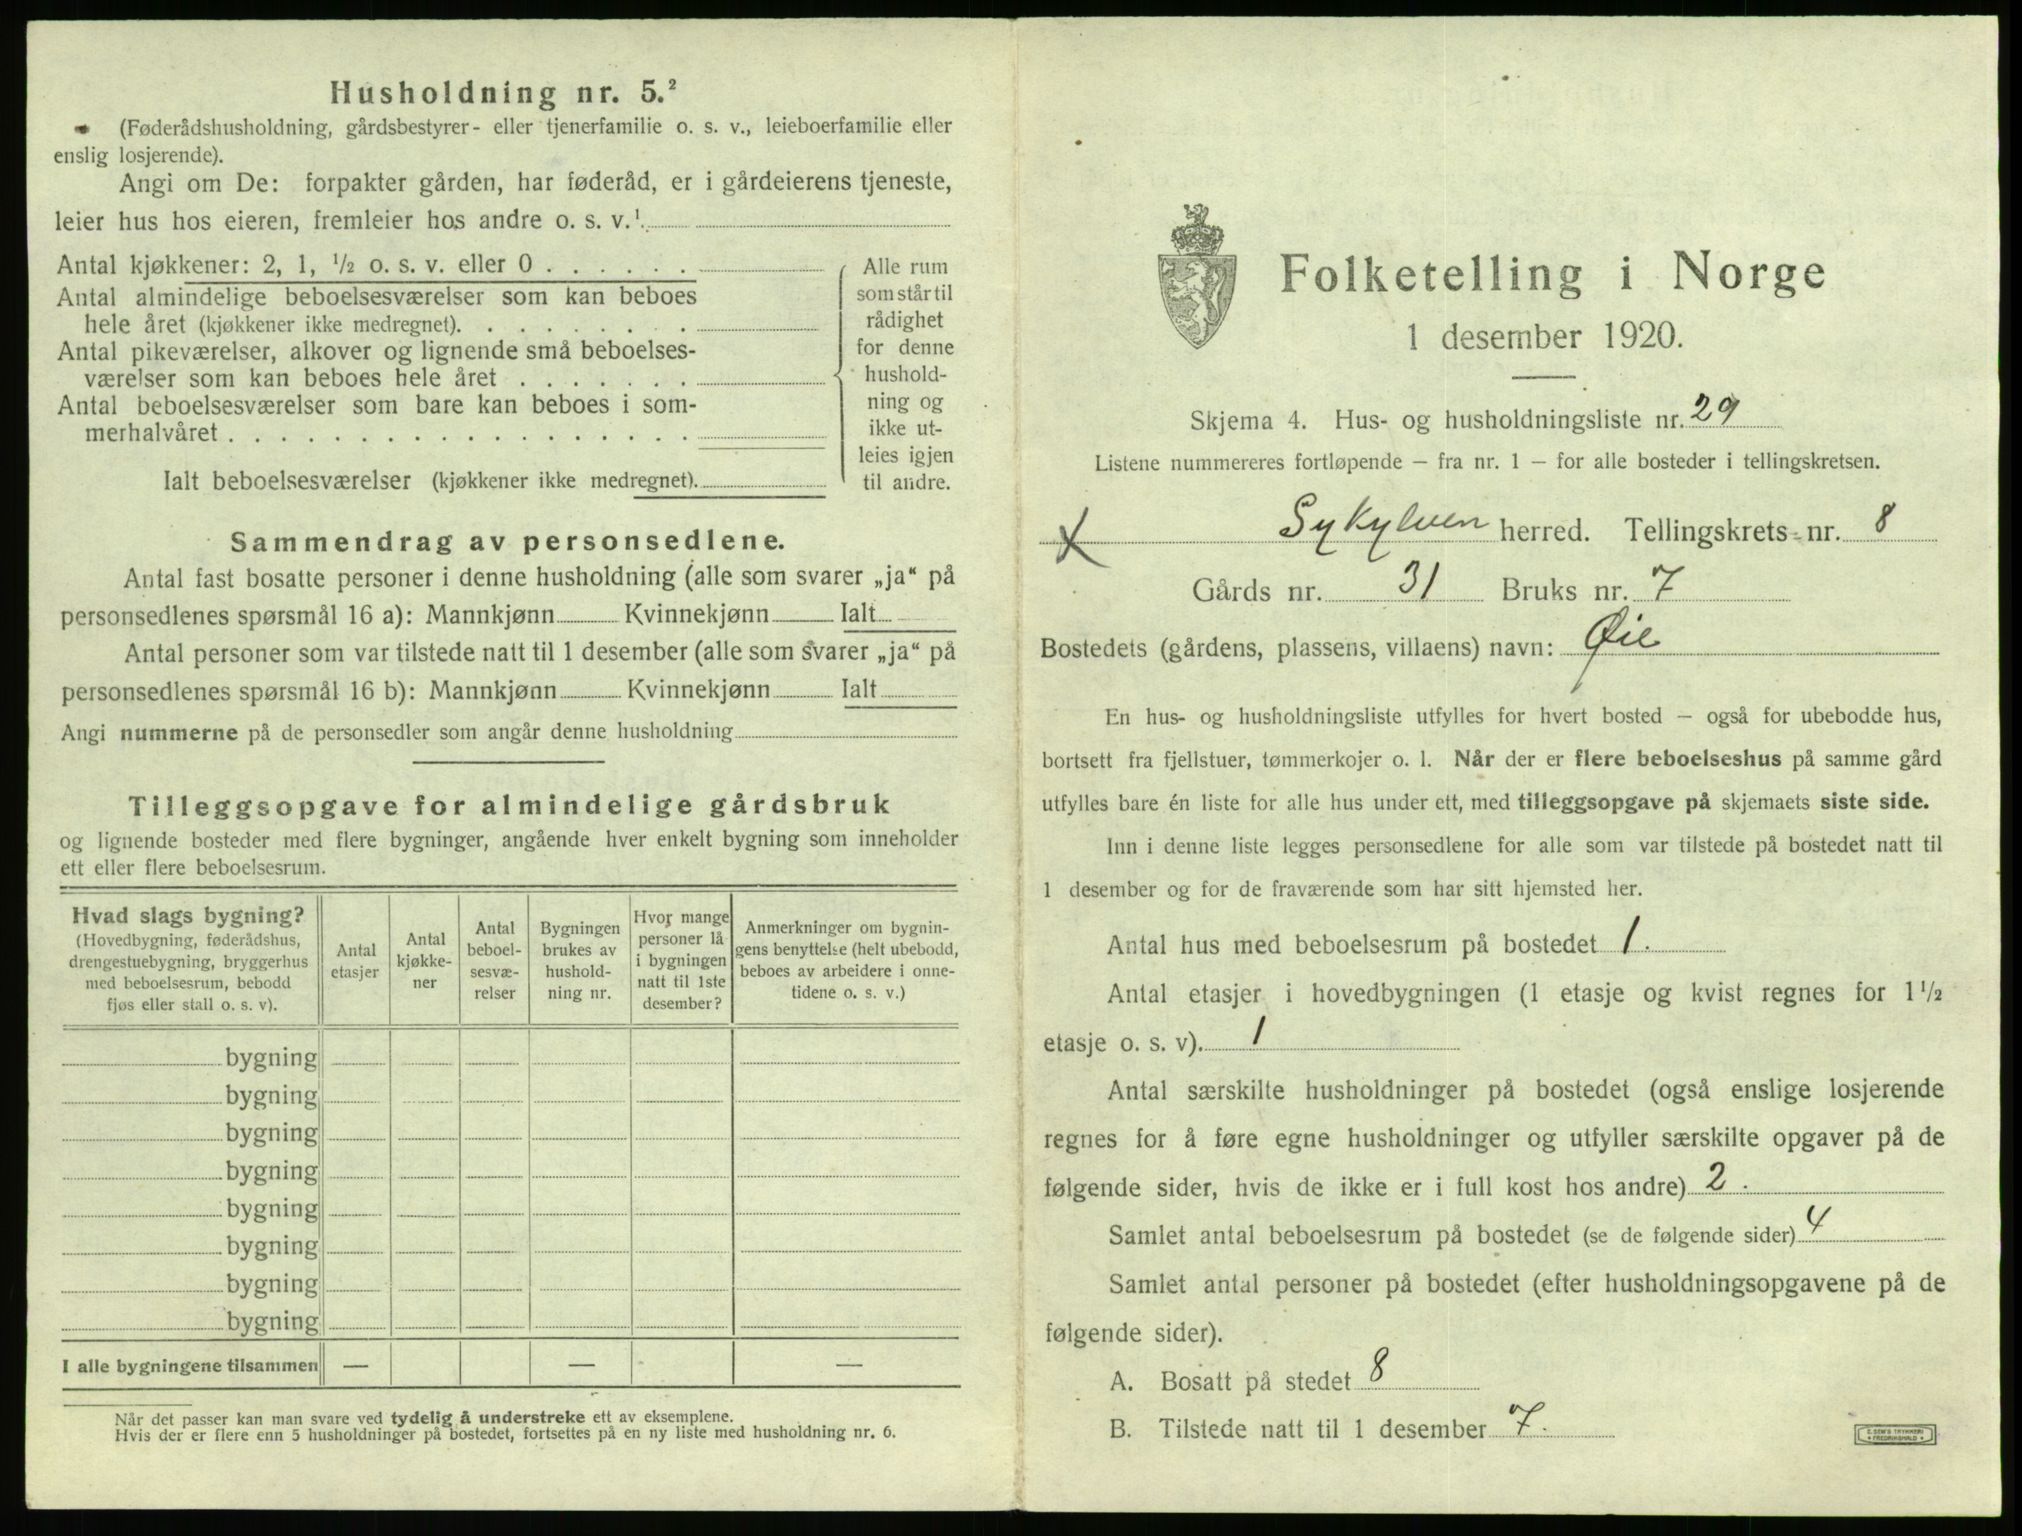 Husholdning nr. 5.²
(Føderådshusholdning, gårdsbestyrer- eller tjenerfamilie o. s. v., leieboerfamilie eller
enslig losjerende).
Angi om De: forpakter gården, har føderåd, er i gårdeierens tjeneste,
leier hus hos eieren, fremleier hos andre o. s. v.¹
Antal kjøkkener: 2, 1, ½ o. s. v. eller 0 . . . . . .
Antal almindelige beboelsesværelser som kan beboes
hele året (kjøkkener ikke medregnet). . . . . . . . .
Antal pikeværelser, alkover og lignende små beboelses-
værelser som kan beboes hele året . . . . . . .
Antal beboelsesværelser som bare kan beboes i som-
merhalvåret . . . . . . . . . . . . . . . . . .
Ialt beboelsesværelser (kjøkkener ikke medregnet).
Alle rum
som står til
rådighet
for denne
hushold-
ning og
ikke ut-
leies igjen
til andre.
Sammendrag av personsedlene.
Antal fast bosatte personer i denne husholdning (alle som svarer „ja“ på
personsedlenes spørsmål 16 a): Mannkjønn Kvinnekjønn Ialt
Antal personer som var tilstede natt til 1 desember (alle som svarer „ja“ på
personsedlenes spørsmål 16 b): Mannkjønn Kvinnekjønn Ialt
Angi nummerne på de personsedler som angår denne husholdning
Tilleggsopgave for almindelige gårdsbruk
og lignende bosteder med flere bygninger, angående hver enkelt bygning som inneholder
ett eller flere beboelsesrum.
Hvad slags bygning?
(Hovedbygning, føderådshus,
drengestuebygning, bryggerhus
med beboelsesrum, bebodd
fjøs eller stall o. s. v).
Antal
etasjer
Antal
kjøkke-
ner
Antal
beboel-
sesvæ-
relser
Bygningen
brukes av
hushold-
ning nr.
Hvor mange
personer lå
i bygningen
natt til 1ste
desember?
Anmerkninger om bygnin-
gens benyttelse (helt ubebodd,
beboes av arbeidere i onne-
tidene o. s. v.)
bygning
bygning
bygning
bygning
bygning
bygning
bygning
bygning
I alle bygningene tilsammen — — —
Når det passer kan man svare ved tydelig å understreke ett av eksemplene.
Hvis der er flere enn 5 husholdninger på bostedet, fortsettes på en ny liste med husholdning nr. 6.
Folketelling i Norge
1 desember 1920.
Skjema 4. Hus- og husholdningsliste nr. 29
Listene nummereres fortløpende – fra nr. 1 – for alle bosteder i tellingskretsen.
X Sykylven herred. Tellingskrets nr. 8
Gårds nr. 31 Bruks nr. 7
Bostedets (gårdens, plassens, villaens) navn: Øie
En hus- og husholdningsliste utfylles for hvert bosted – også for ubebodde hus,
bortsett fra fjellstuer, tømmerkojer o. l. Når der er flere beboelseshus på samme gård
utfylles bare én liste for alle hus under ett, med tilleggsopgave på skjemaets siste side.
Inn i denne liste legges personsedlene for alle som var tilstede på bostedet natt til
1 desember og for de fraværende som har sitt hjemsted her.
Antal hus med beboelsesrum på bostedet 1.
Antal etasjer i hovedbygningen (1 etasje og kvist regnes for 1½
etasje o. s. v). 1
Antal særskilte husholdninger på bostedet (også enslige losjerende
regnes for å føre egne husholdninger og utfyller særskilte opgaver på de
følgende sider, hvis de ikke er i full kost hos andre) 2.
Samlet antal beboelsesrum på bostedet (se de følgende sider) 4
Samlet antal personer på bostedet (efter husholdningsopgavene på de
følgende sider).
A. Bosatt på stedet 8
B. Tilstede natt til 1 desember 7.
E. SEM'S TRYKKERI
• FREDRIKSHALD •